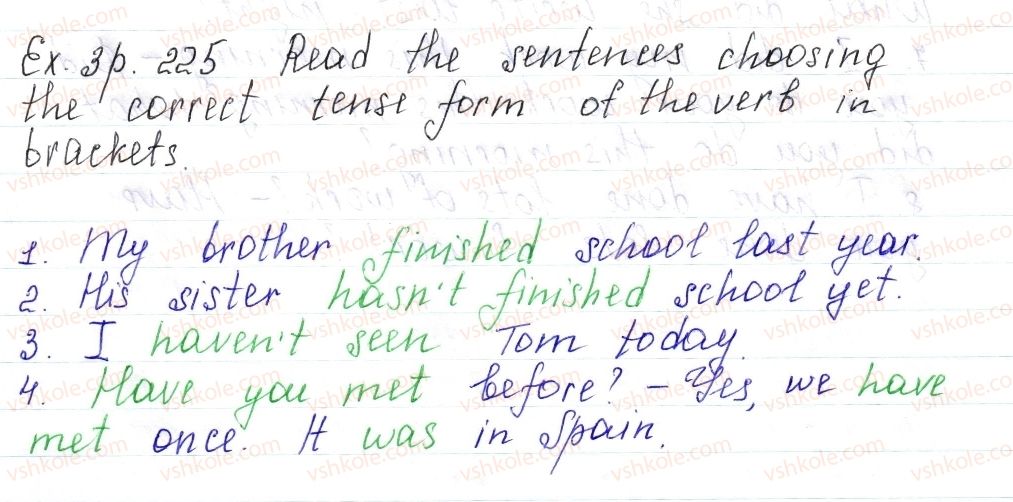 Ex. 3p. 225 Read the sentences choosing
the correct tense form of the verb in
brackets.
1. My brother finished school last year.
2. His sister hasn't finished school yet.
3. I haven't seen Tom today.
4. Have you met before? – Yes, we have
met once. It was in Spain.